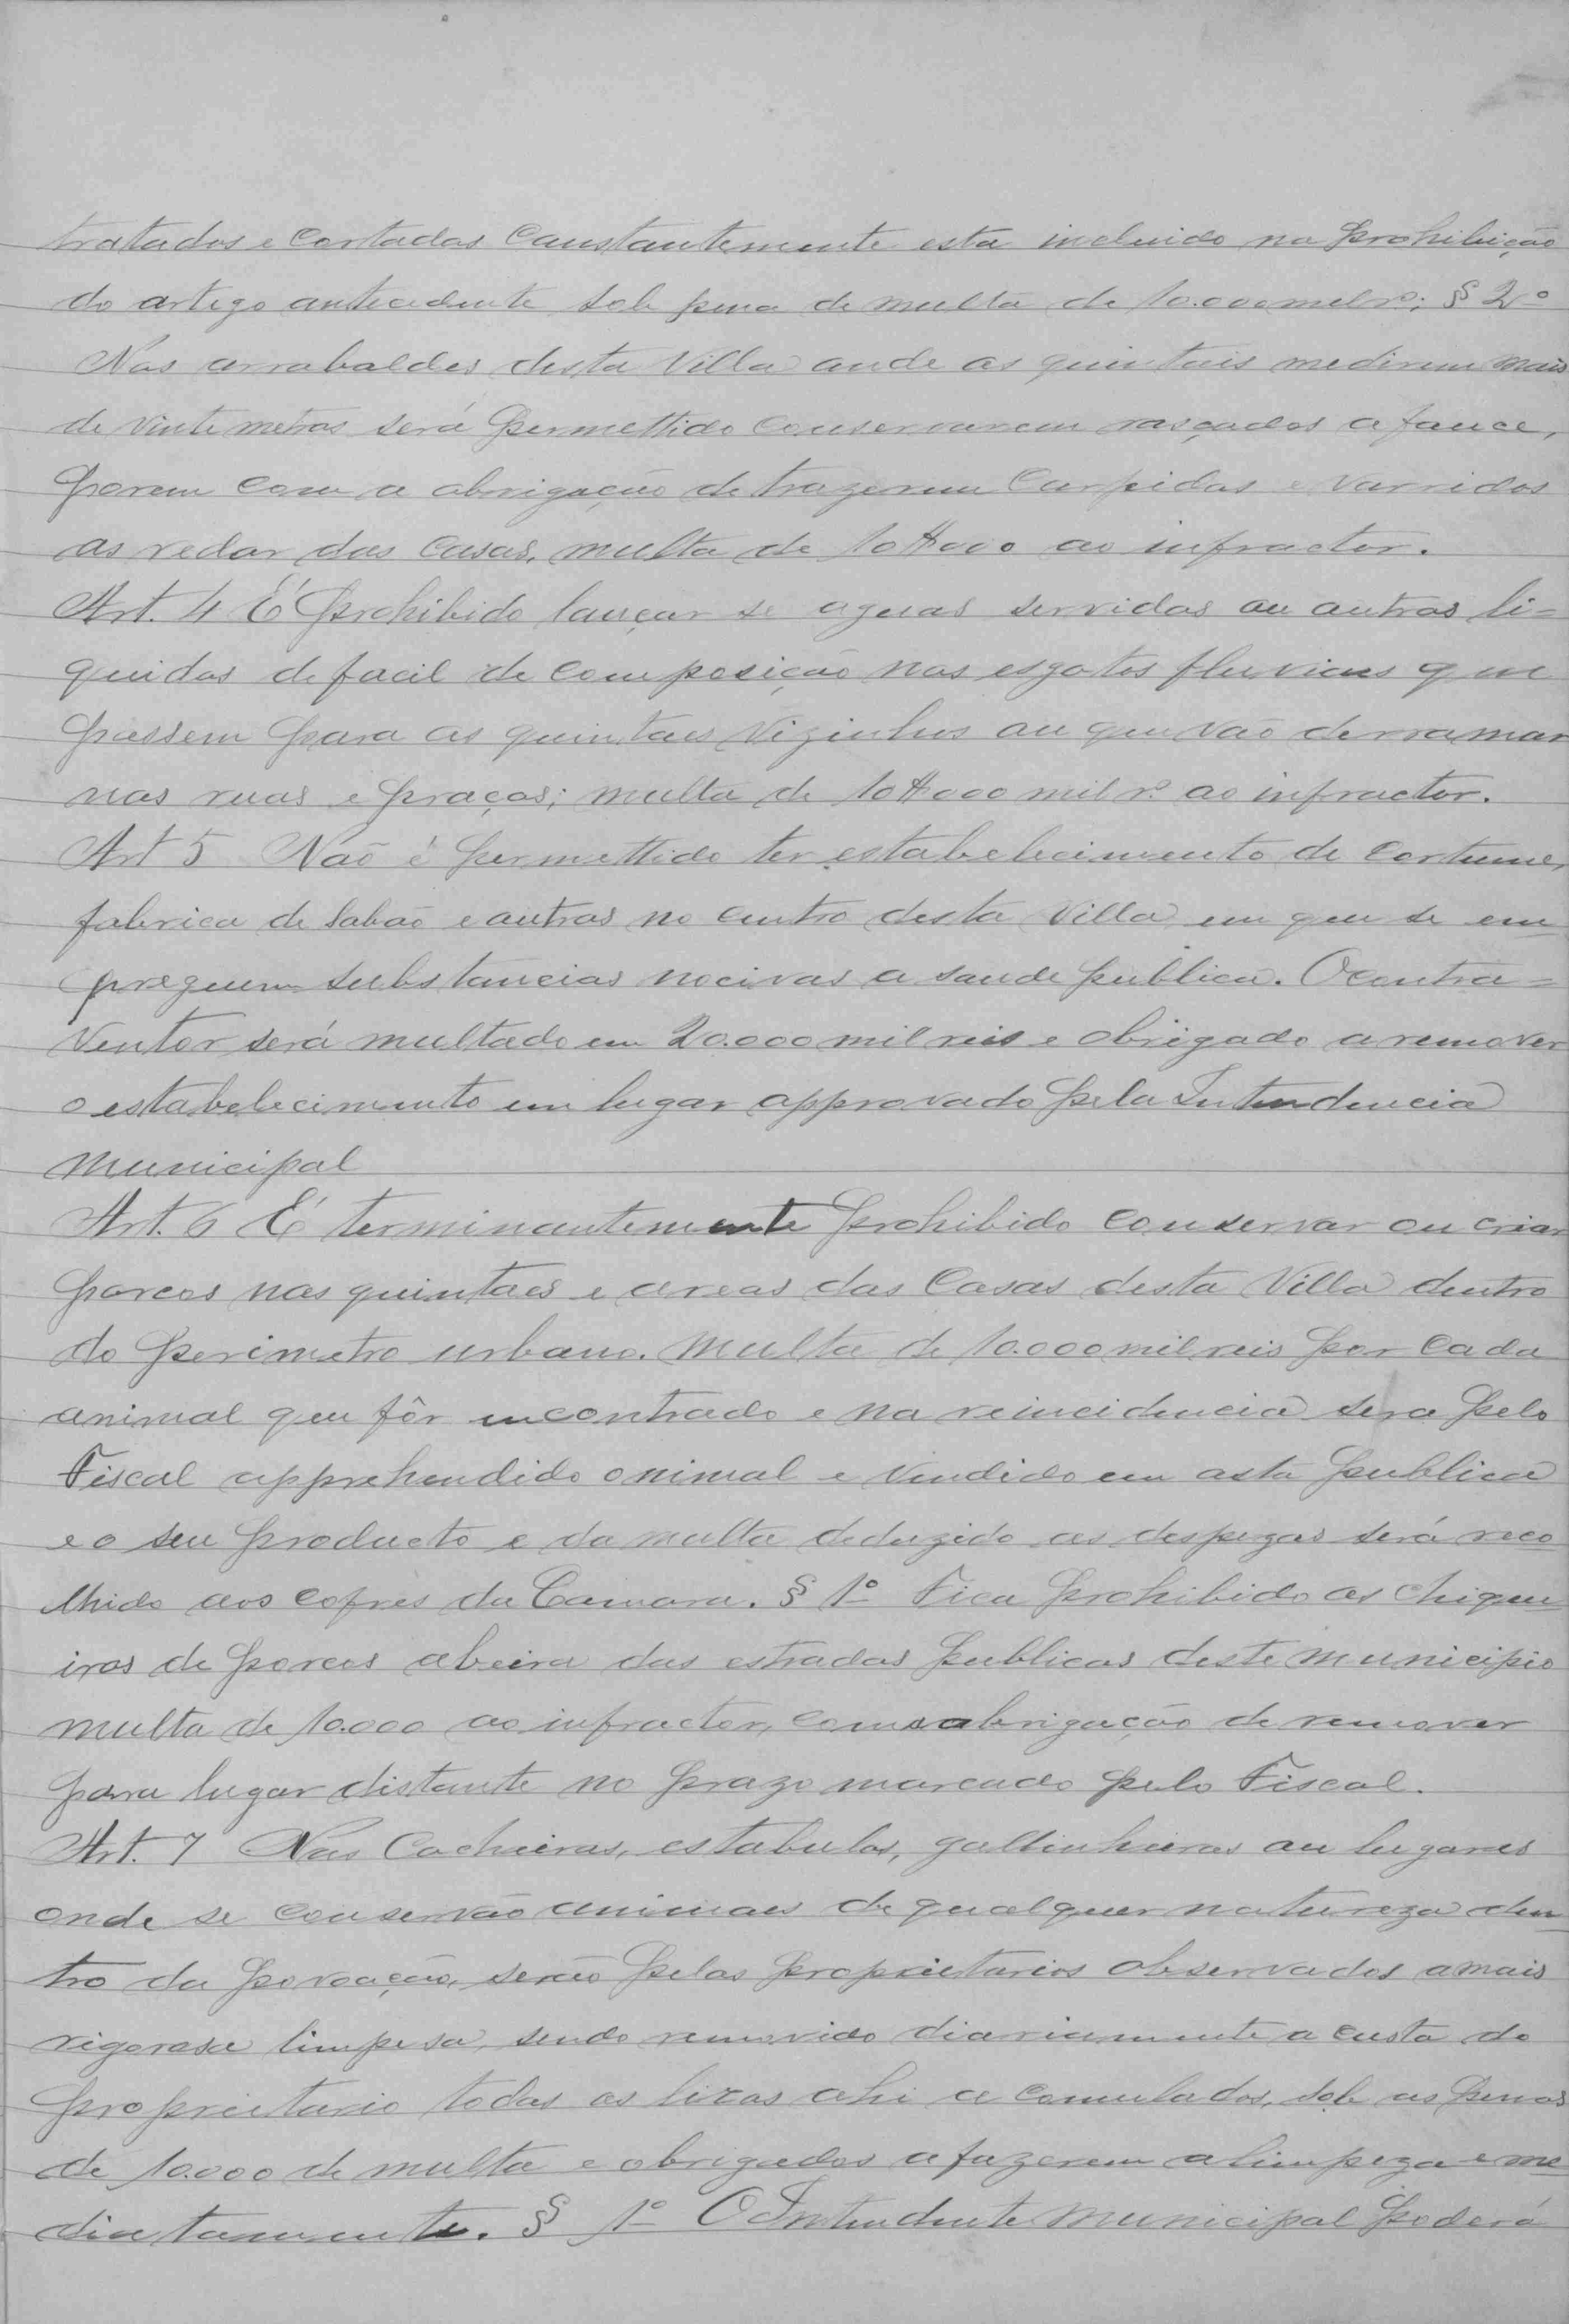 tratados e cortadas constantemente esta incluido na prohibição
do artigo antecedente sob pena de multa de 10.000 mil rs; § 2º
Nos arrabaldes desta Villa onde os quintais medirem mais
de vinte metros será permettido conservarem rasçados a fouce,
porem com a obrigação de trazerem carpidos e varridos
ao redor das casas, multa de 10$000 ao infractor.
Art. 4 É prohibido lançar se aguas servidas ou outros li=
quidos de facil de composição nos esgotos fluviaes que
passem para os quintaes vizinhos ou que vão derramar
nas ruas e praças; multa de 10$000 mil rs ao infractor.
Art 5 Não é permettido ter estabelecimento de cortume,
fabrica de sabão e outras no centro desta Villa em que se em
preguem substancias nocivas a saude publica. O contra=
ventor será multado em 20.000 mil reis e obrigado a remover
o estabelecimento em lugar approvado pela Intendencia
Municipal
Art. 6 É terminantemente prohibido conservar ou criar
porcos nos quintaes e areas das casas desta Villa dentro
do perimetro urbano. Multa de 10.000 mil reis por cada
animal que fôr encontrado e na reincidencia sera pelo
Fiscal apprehendido o nimal e vendido em asta publica
e o seu producto e da multa deduzido as despezas será reco
lhido aos cofres da Camara. § 1º Fica prohibido os chique
iros de porcos abeira das estradas publicas deste municipio
multa de 10.000 ao infractor, com a obrigação de remover
para lugar distante no prazo marcado pelo Fiscal.
Art. 7 Nas Cocheiras, estabulos, gallinheiros ou lugares
onde se conservão animaes de qualquer natureza den
tro da povoação, serão pelos proprietarios observados a mais
rigorosa limpesa, sendo removido diariamente a custa do
proprietario todos os lixos ahi a comulados, sob as penas
de 10.000 de multa e obrigados a fazerem a limpeza eme
diatamente. § 1º O Intendente Municipal poderá